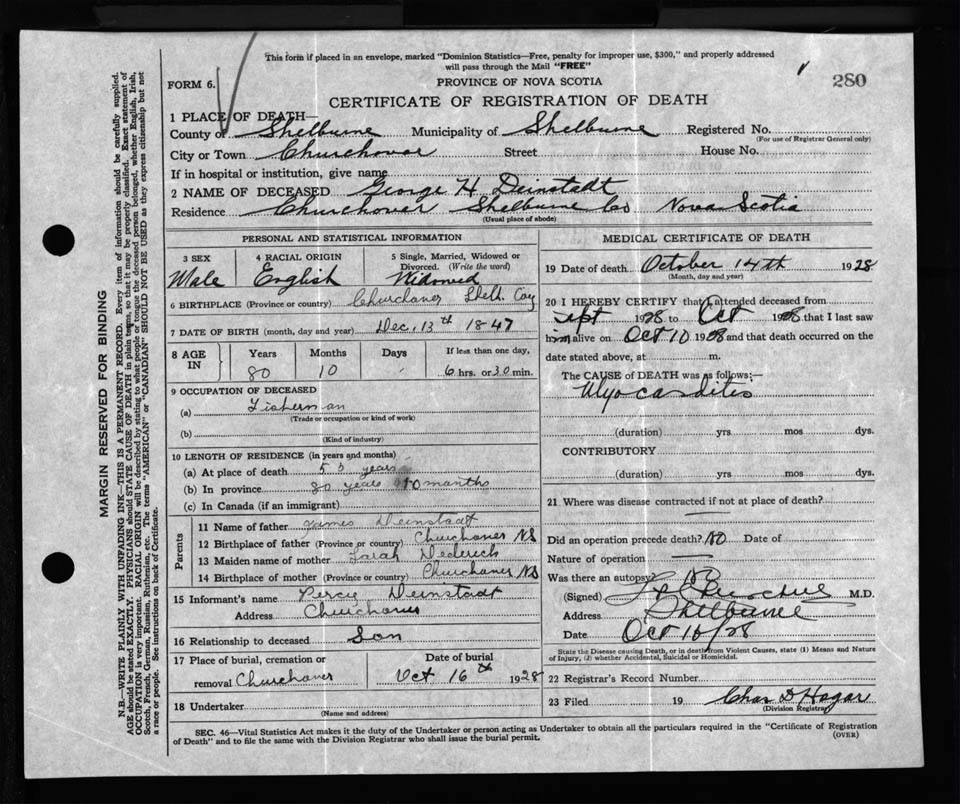 This form if placed in an envelope, marked "Dominion Statistics—Free, penalty for improper use, $300," and properly addressed
will pass through the Mail "FREE"
280
FORM 6.
PROVINCE OF NOVA SCOTIA
CERTIFICATE OF REGISTRATION OF DEATH
1 PLACE OF DEATH—
County of Shelburne Municipality of Shelburne Registered No.
(For use of Registrar General only)
City or Town Churchover Street House No.
If in hospital or institution, give name
2 NAME OF DECEASED George H Deinstadt
Residence Churchover Shelburne Co Nova Scotia
(Usual place of abode)
PERSONAL AND STATISTICAL INFORMATION
3 SEX 4 RACIAL ORIGIN 5 Single, Married, Widowed or
Divorced. (Write the word)
Male English Widowed
6 BIRTHPLACE (Province or country) Churchover Shel. Coy
7 DATE OF BIRTH (month, day and year) Dec, 13th 1847
8 AGE IN Years Months Days If less than one day,
80 10 6 hrs. or 30 min.
9 OCCUPATION OF DECEASED
(a) Fisherman
(Trade or occupation or kind of work)
(b)
(Kind of industry)
10 LENGTH OF RESIDENCE (in years and months)
(a) At place of death years
(b) In province 80 years 10 months
(c) In Canada (if an immigrant)
Parents
11 Name of father James Deinstadt
12 Birthplace of father (Province or country) Churchover NS
13 Maiden name of mother Sarah Dederick
14 Birthplace of mother (Province or country) Churchover NS
15 Informant's name Percie Deinstadt
Address Churchover
16 Relationship to deceased Son
17 Place of burial, cremation or Date of burial
removal Churchover Oct 16th 1928
18 Undertaker
(Name and address)
MEDICAL CERTIFICATE OF DEATH
19 Date of death October 14th 1928
(Month, day and year)
20 I HEREBY CERTIFY that I attended deceased from
Sept 1928 to Oct 1928 that I last saw
him alive on Oct 10 1928 and that death occurred on the
date stated above, at m.
The CAUSE OF DEATH was as follows:—
Myocarditis
(duration) yrs mos dys.
CONTRIBUTORY
(duration) yrs mos dys.
21 Where was disease contracted if not at place of death?
Did an operation precede death? NO Date of
Nature of operation
Was there an autopsy? No
(Signed) M.D.
Address Shelburne
Date Oct 16/28
State the Disease causing Death, or in death from Violent Causes, state (1) Means and Nature
of Injury, (2) whether Accidental, Suicidal or Homicidal.
22 Registrar's Record Number
23 Filed 19 Chas D Hagar
(Division Registrar)
SEC. 46—Vital Statistics Act makes it the duty of the Undertaker or person acting as Undertaker to obtain all the particulars required in the "Certificate of Registration
of Death" and to file the same with the Division Registrar who shall issue the burial permit.
(OVER)
MARGIN RESERVED FOR BINDING
N.B.—WRITE PLAINLY WITH UNFADING INK—THIS IS A PERMANENT RECORD. Every item of information should be carefully supplied.
AGE should be stated EXACTLY. PHYSICIANS should STATE CAUSE OF DEATH in plain terms, so that it may be properly classified. Exact statement of
OCCUPATION is very important. RACIAL ORIGIN will be described by stating to what people or tongue the deceased person belonged, whether English, Irish,
Scotch, French, German, Russian, Ruthenian, etc. The terms "AMERICAN" or "CANADIAN" SHOULD NOT BE USED as they express citizenship but not
a race or people. See instructions on back of Certificate.